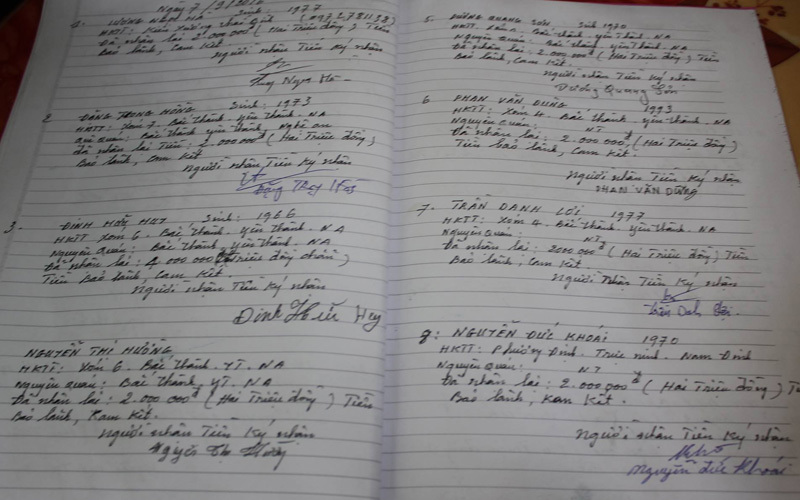 Ngày 7/9/2016
LƯƠNG NGỌC HÀ Sinh: 1977
HKTT: Kiến Xương Thái
Đã nhận lại 2.000.000đ (Hai Triệu đồng) Tiền
Bảo lãnh, Cam Kết
Người nhận Tiền Ký nhận
2. ĐẶNG TRỌNG HỒNG Sinh: 1973
HKTT: Xóm 7. Bắc thành yên thành. NA
Bắc thành yên thành, Nghệ an
đã nhận lại Tiền: 2.000.000đ (Hai Triệu đồng)
Bảo lãnh, Cam Kết
Người nhận Tiền Ký nhận
3. ĐINH HỮU HUY Sinh: 1966
HKTT Xóm 6. Bắc thành. yên thành. NA
Nguyên Quán: Bắc thành. yên thành. NA
Đã nhận lại: 4.000.000 triệu đồng chẵn)
Tiền Bảo lãnh, Cam Kết.
Người nhận Tiền Ký nhận
Đinh Hữu Huy
NGUYỄN THỊ HƯỜNG
HKTT: Xóm 6. Bắc thành. YT. NA
Nguyên quán: Bắc thành, YT. NA
Đã nhận lại: 2.000.000đ (Hai Triệu đồng) Tiền
Bảo lãnh, Kam Kết.
Người nhận Tiền Ký nhận
Nguyễn Thị Hường
5. DƯƠNG QUANG SƠN Sinh 1970
HKTT: Bắc thành. yên Thành. NA
Nguyên quán: Bắc thành. yên Thành. NA
Đã nhận lại: 2.000.000đ (Hai Triệu đồng) Tiền
Bảo lãnh, Cam Kết.
Người nhận Tiền Ký nhận
Dương Quang Sơn
6. PHAN VĂN DŨNG 1993
HKTT: Xóm 4. Bắc thành. yên thành. NA
Nguyên Quán: NT
Đã nhận lại: 2.000.000đ (Hai Triệu đồng)
Tiền bảo lãnh, Cam Kết.
Người nhận Tiền Ký nhận
PHAN VĂN DŨNG
7. TRẦN DANH LỢI 1977
HKTT: Xóm 4. Bắc thành. yên thành. NA
Nguyên Quán: NT
Đã nhận lại: 2000.000đ (Hai Triệu đồng) Tiền
Bảo lãnh, Cam Kết.
Người Nhận Tiền Ký nhận
Trần Danh Lợi
8: NGUYỄN ĐỨC KHOÁI 1970
HKTT: Phương Định. Trực ninh. Nam Định
Nguyên Quán: NT
Đã nhận lại: 2.000.000đ (Hai Triệu đồng) Tiền
Bảo lãnh, Kam Kết.
Người nhận Tiền Ký nhận
Nguyễn Đức Khoái